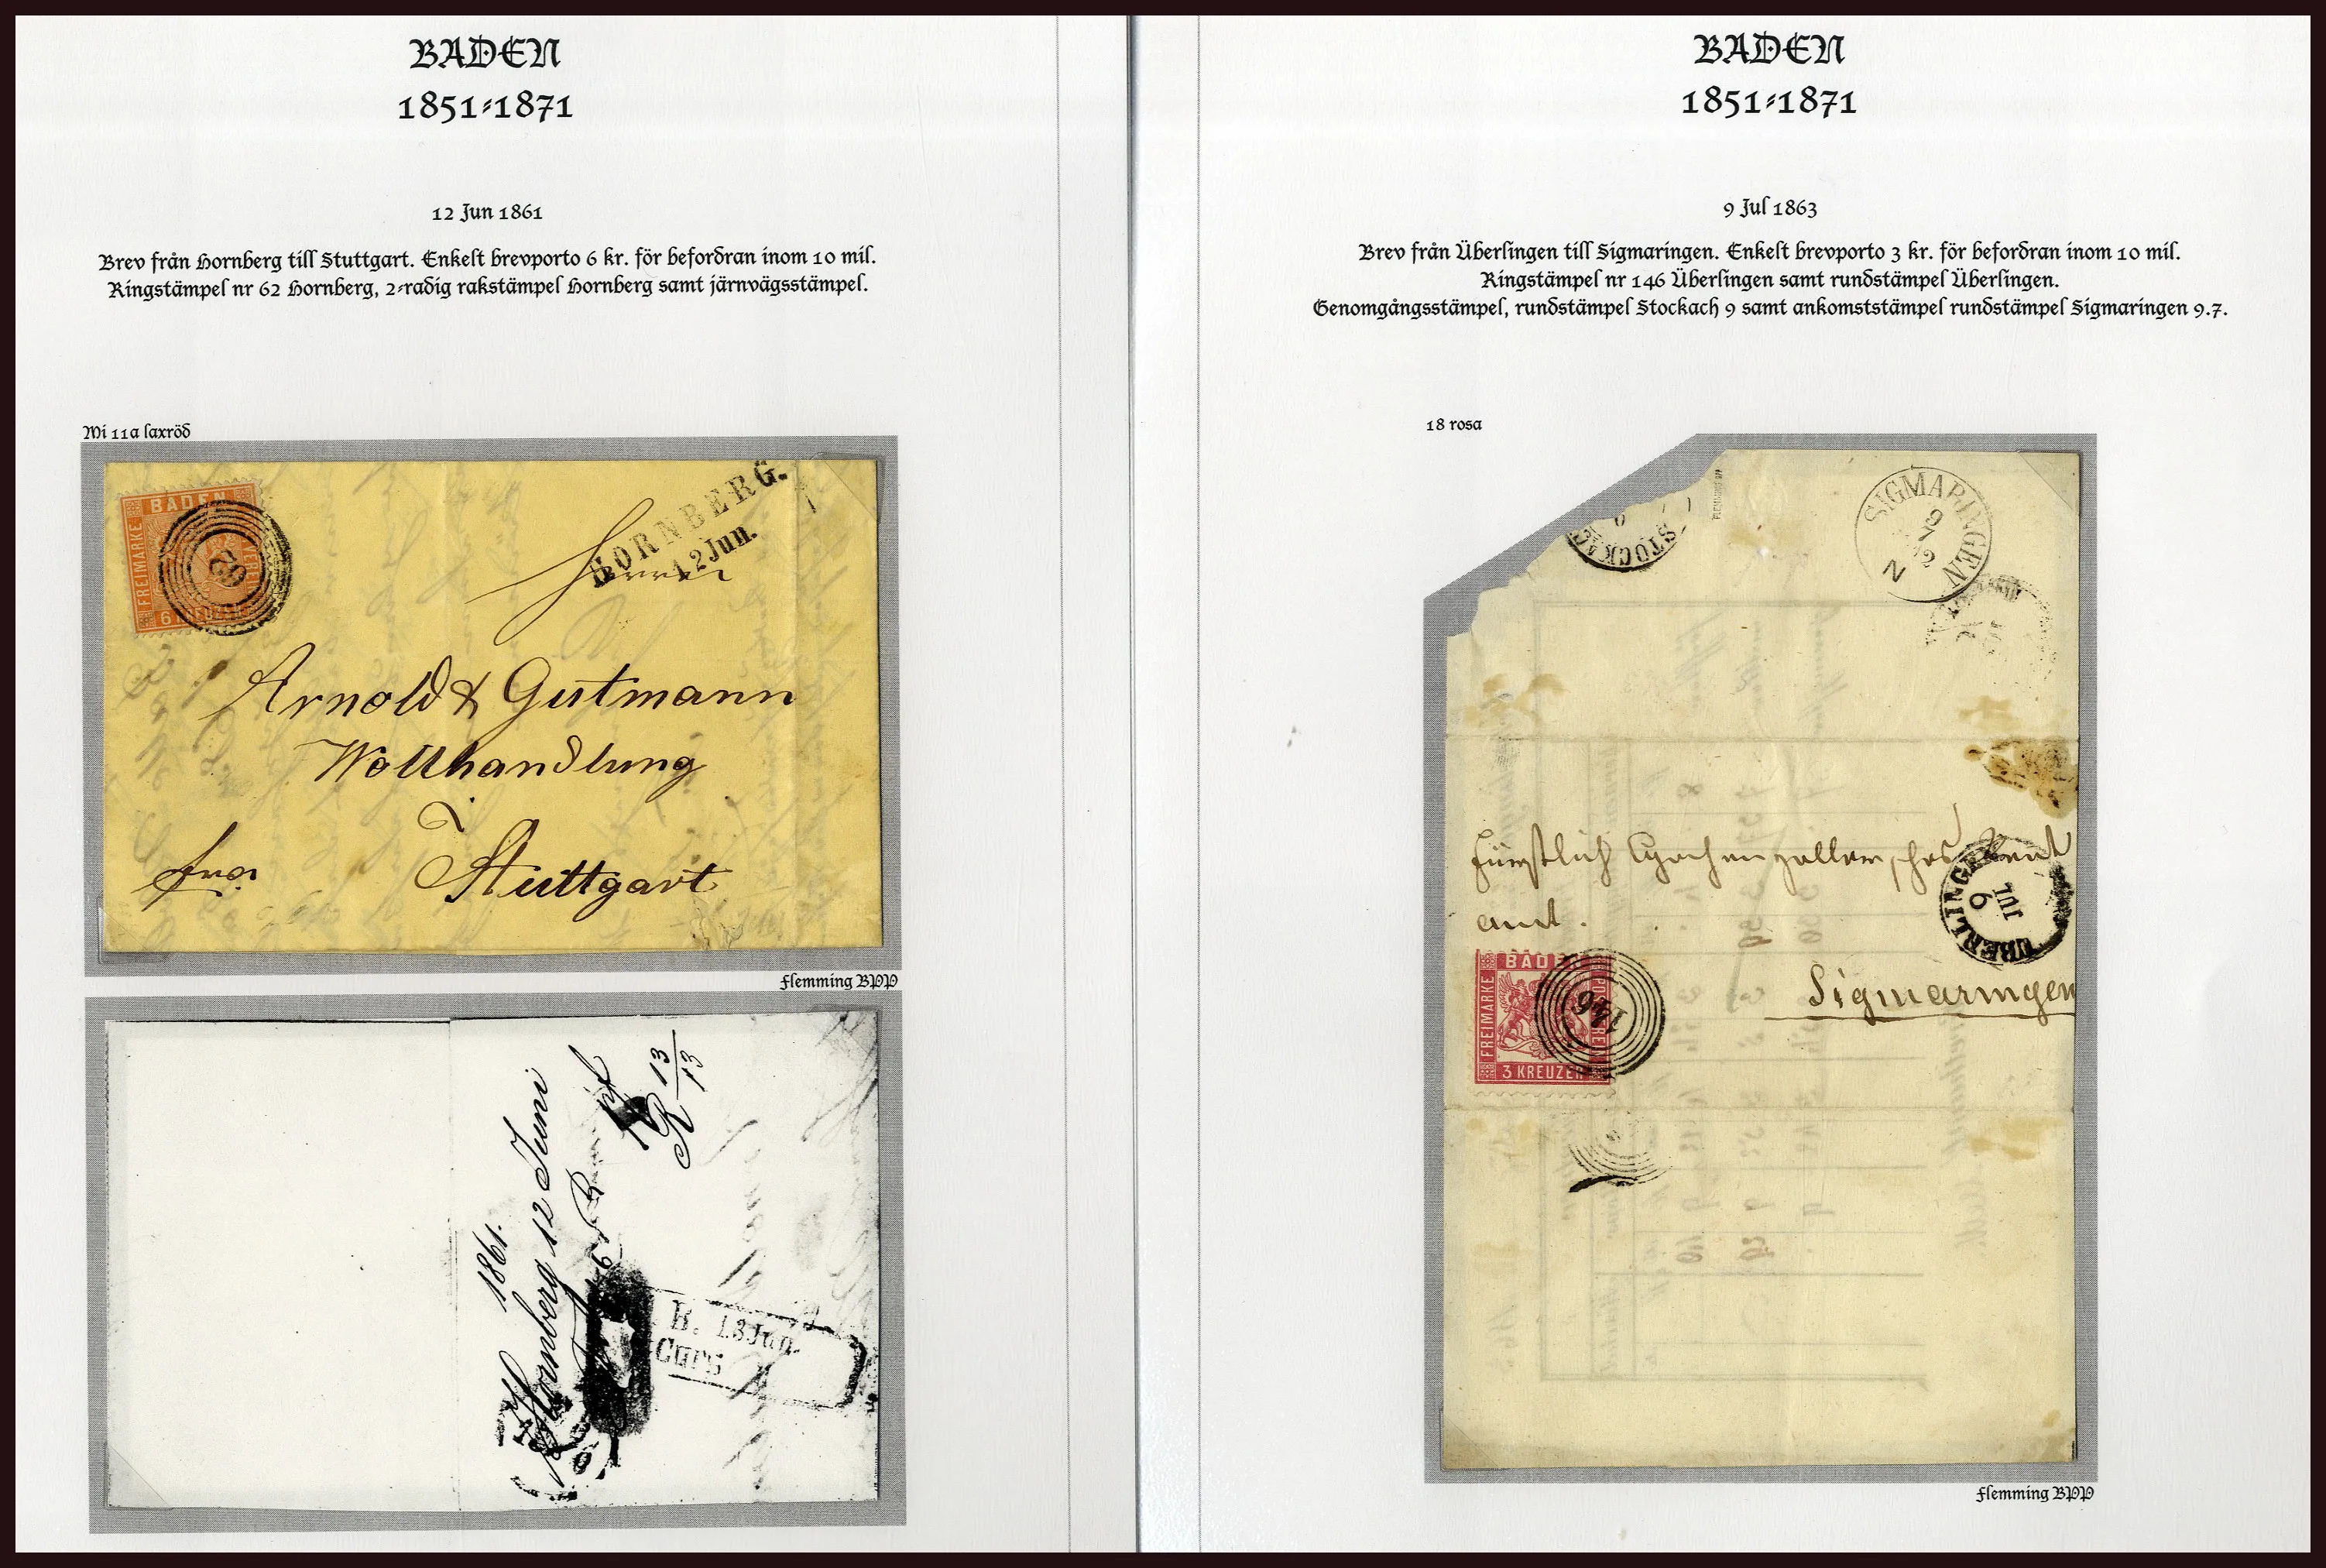 BADEN
1851-1871
12 Jun 1861
Brev från Hornberg till Stuttgart. Enkelt brevporto 6 kr. för befordran inom 10 mil.
Ringstämpel nr 62 Hornberg, 2-radig rakstämpel Hornberg samt järnvägsstämpel.
Mi 11a laxröd
BADEN
FREIMARKE
6 KREUZER
62
HORNBERG.
12 Jun.
Herren
Arnold & Gutmann
Wollhandlung
Stuttgart
fro.
Flemming BPP
1861.
Hornberg 12 Juni
R 13/13
B. 13 Jun.
Curs
BADEN
1851-1871
9 Jul 1863
Brev från Überlingen till Sigmaringen. Enkelt brevporto 3 kr. för befordran inom 10 mil.
Ringstämpel nr 146 Überlingen samt rundstämpel Überlingen.
Genomgångsstämpel, rundstämpel Stockach 9 samt ankomststämpel rundstämpel Sigmaringen 9.7.
18 rosa
STOCKAC
SIGMARINGEN
9
7
N
Fürstlich Hohenzollernsches Rent
amt.
UBERLINGEN
9
JUL
Sigmaringen
BADEN
FREIMARKE
3 KREUZER
146
Flemming BPP